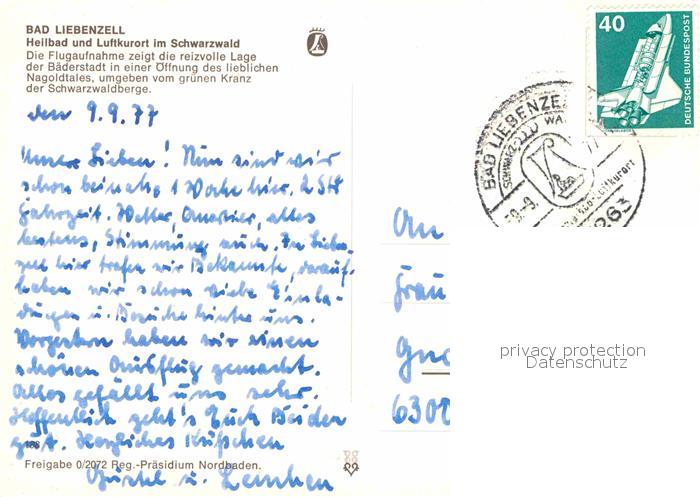 BAD LIEBENZELL
Heilbad und Luftkurort im Schwarzwald
Die Flugaufnahme zeigt die reizvolle Lage
der Bäderstadt in einer Öffnung des lieblichen
Nagoldtales, umgeben vom grünen Kranz
der Schwarzwaldberge.
den 9.9.77
Unsere Lieben! Nun sind wir
schon beinah, 1 Woche hier. 2 Std
Fahrzeit. Wetter, Quartier, alles
bestens, Stimmung auch. In Lieben-
zell hier trafen wir Bekannte, darauf
haben wir schon viele Einla-
dungen u. Besuche hinter uns.
Vorgestern haben wir einen
schönen Ausflug gemacht.
Alles gefällt uns sehr.
Hoffentlich geht's Euch Beiden
gut. Herzliches Küßchen
Freigabe 0/2072 Reg.-Präsidium Nordbaden.
u. Lenchen
40
DEUTSCHE BUNDESPOST
BAD LIEBENZE
263
An
Frau
6300
privacy protection
Datenschutz